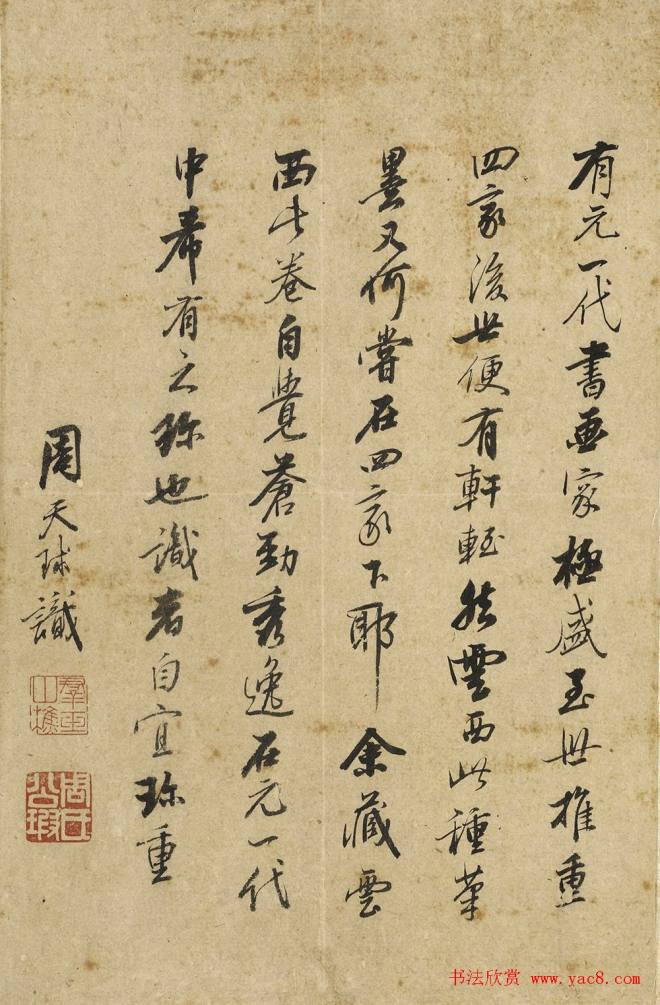 有元一代書畫家極盛至世推重
四家後世便有軒輊然雲西此種筆
墨又何嘗在四家下耶余藏雲
西此卷自覺蒼勁秀逸在元一代
中希有之珎也識者自宜珎重
周天球識
羣玉山樵
周氏公瑕
书法欣赏 www.yac8.com